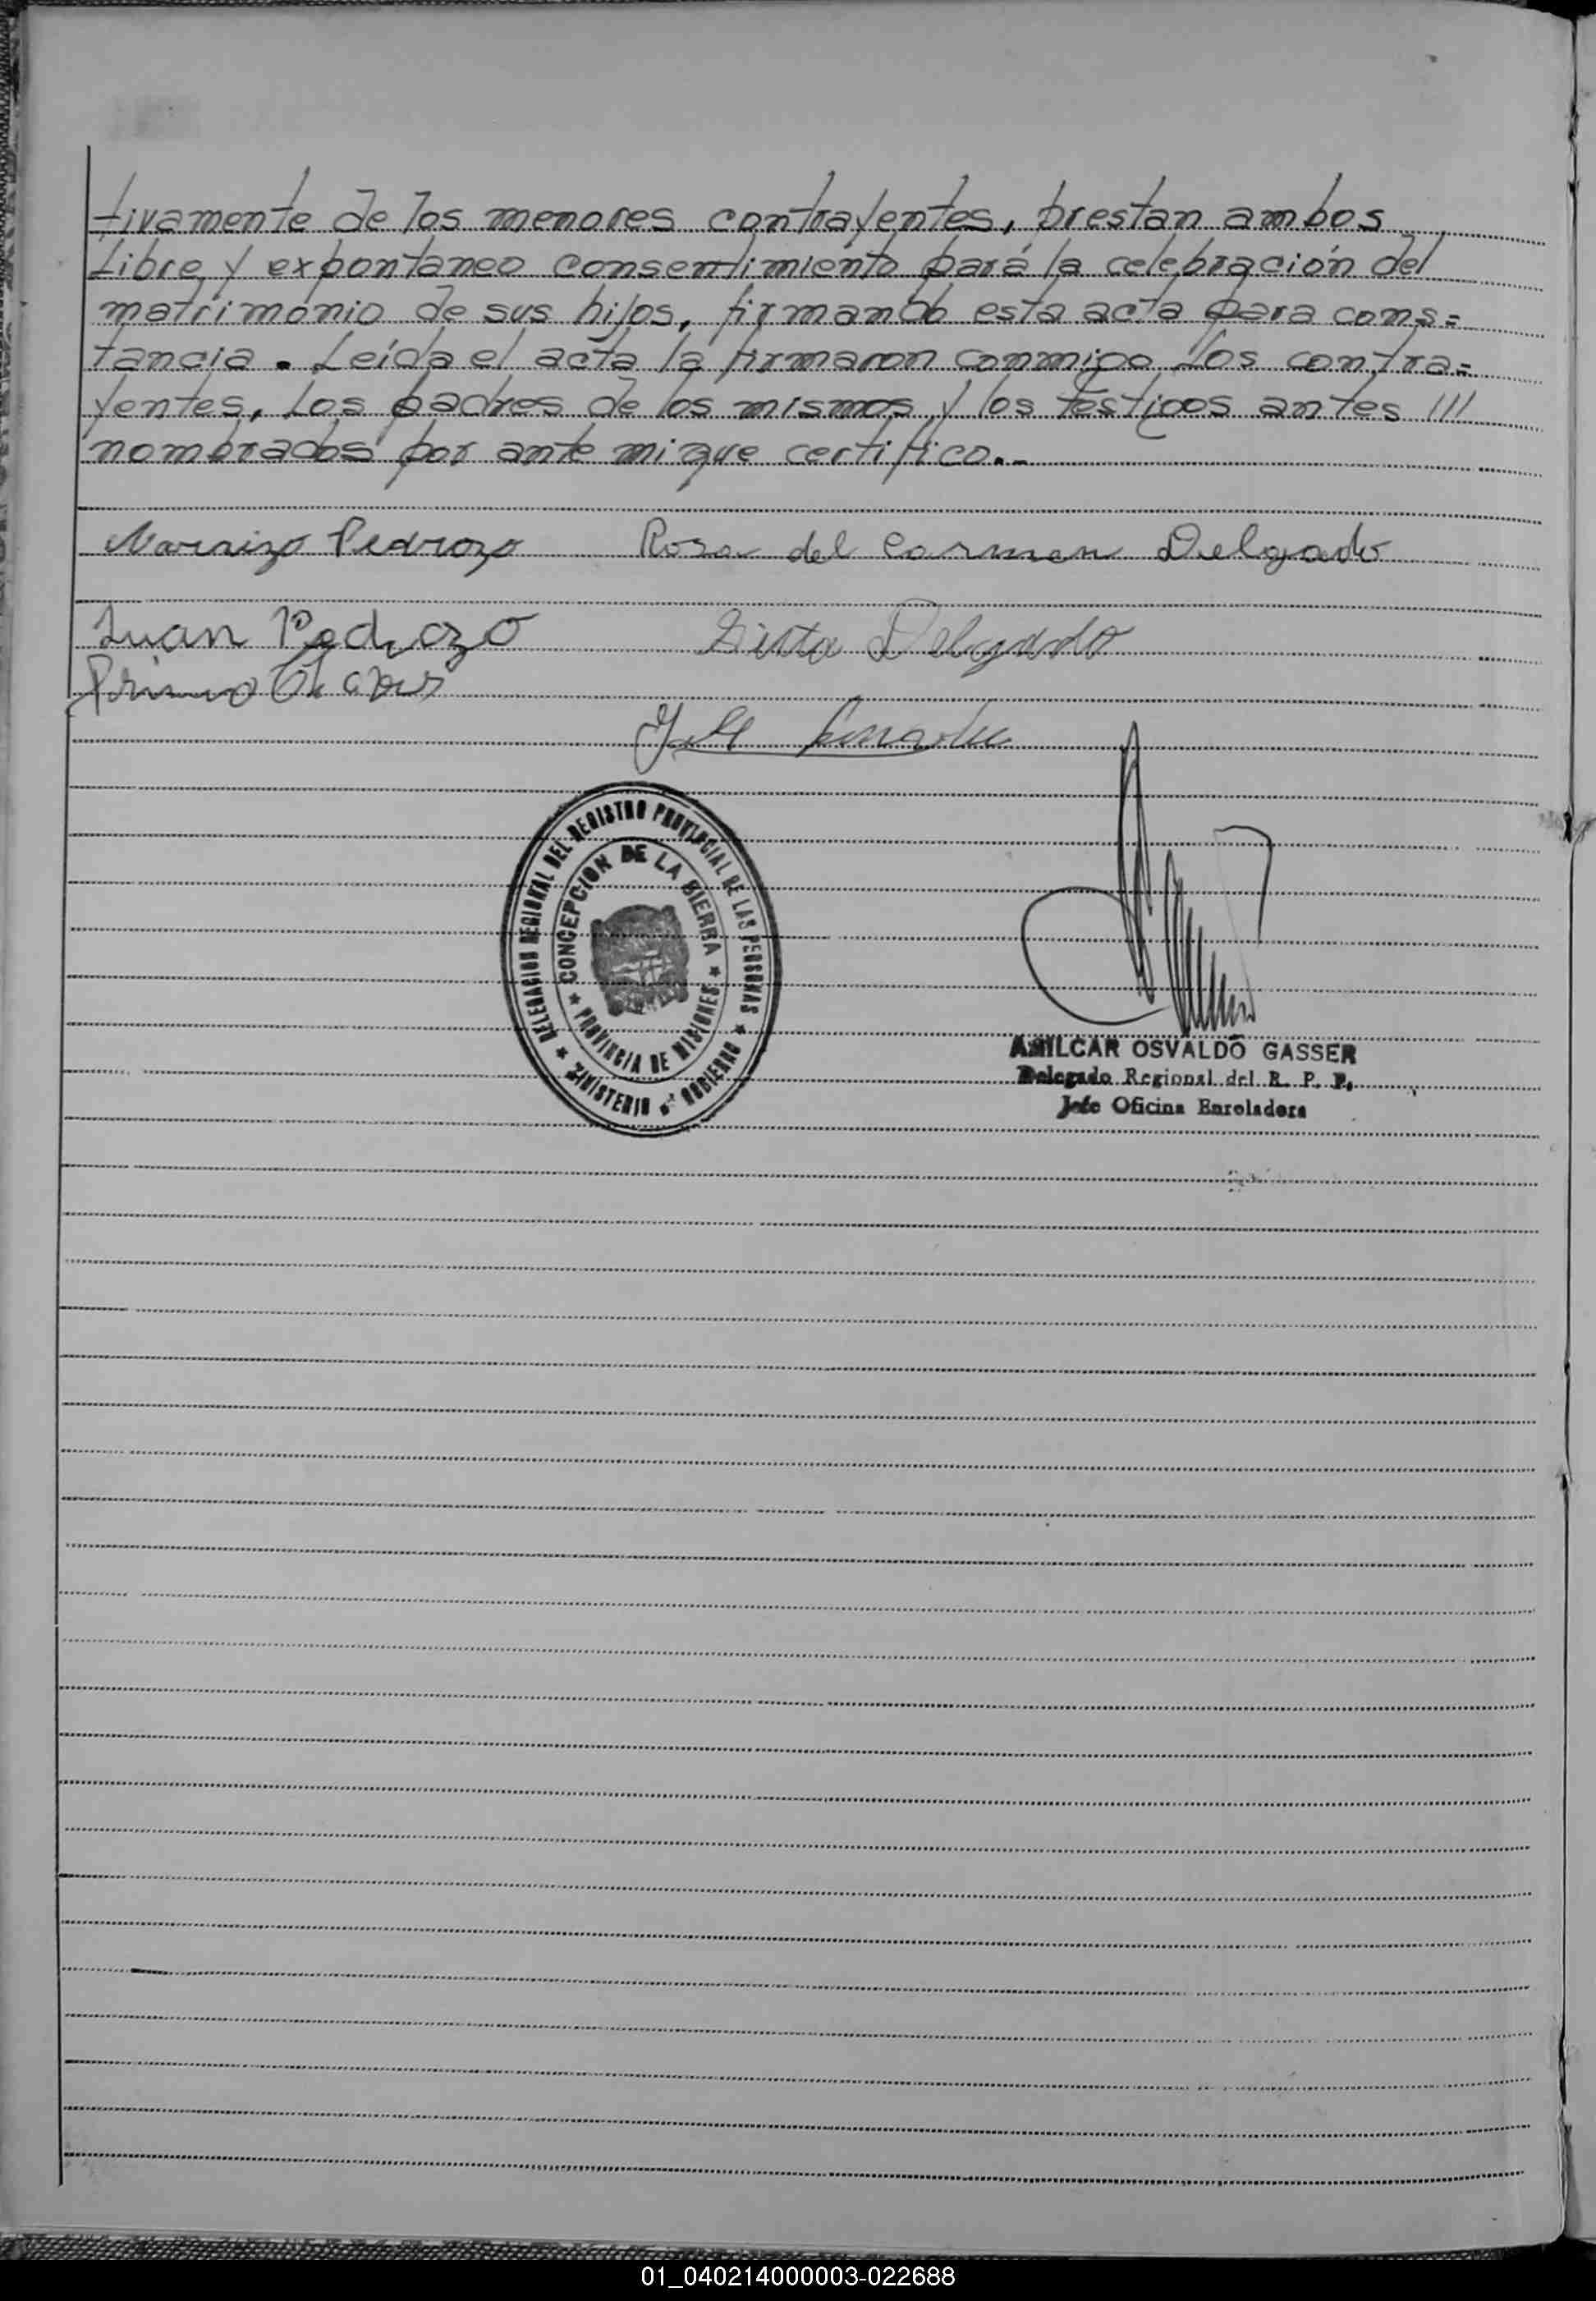 tivamente de los menores contrayentes, prestan ambos
Libre y expontaneo consentimiento para la celebración del
matrimonio de sus hijos, firmando esta acta para cons=
tancia. Leída el acta la firmaron conmigo los contra=
yentes, los padres de los mismos y los testigos antes ///
nombrados por ante mi que certifico.-
Narcizo Pedrozo Rosa del Carmen Delgado
Juan Pedrozo Sixta Delgado
Primo
DELEGACION REGIONAL DEL REGISTRO PROVINCIAL DE LAS PERSONAS
CONCEPCION DE LA SIERRA
PROVINCIA DE MISIONES
MINISTERIO DE GOBIERNO
AMILCAR OSVALDO GASSER
Delegado Regional del R. P. P.
Jefe Oficina Enroladora
01_040214000003-022688